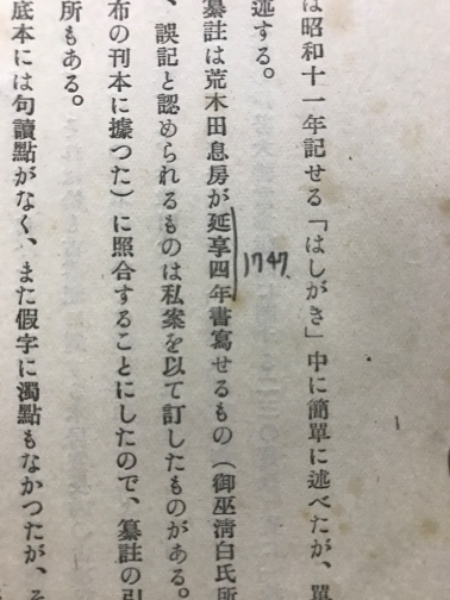 は昭和十一年記せる「はしがき」中に簡單に述べたが、單
述する。
纂註は荒木田息房が延享四年書寫せるもの（御巫淸白氏所
1747
、誤記と認められるものは私案を以て訂したものがある。
布の刊本に據つた）に照合することにしたので、纂註の引
所もある。
底本には句讀點がなく、また假字に濁點もなかつたが、そ